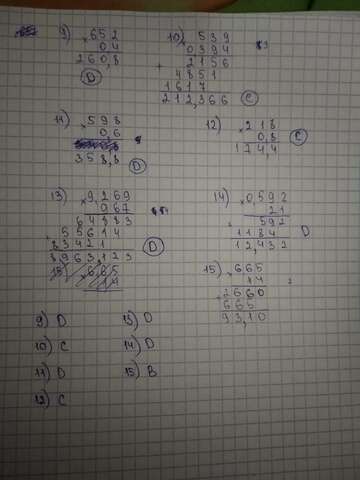 9) 652
× 0,4
260,8
D
10) 539
× 0,394
2156
+ 4851
1617
212,366
C
11) × 598
0,6
358,8
D
12) × 218
0,8
174,4
C
13) × 9,269
967
64883
+ 55614
83421
8963,123
D
14) × 0,592
21
592
+ 1184
12,432
D
15) × 665
14
15) × 665
14
2660
+ 665
93,10
9) D
10) C
11) D
12) C
13) D
14) D
15) B